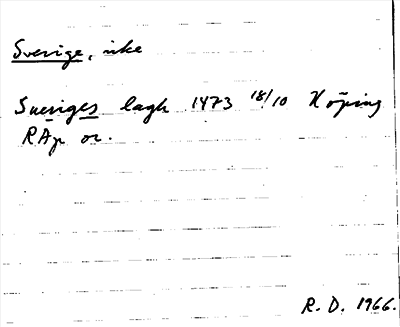 Sverige, rike
Sueriges lagh 1473 18/10 Köping
RAp or.
R. D. 1966.